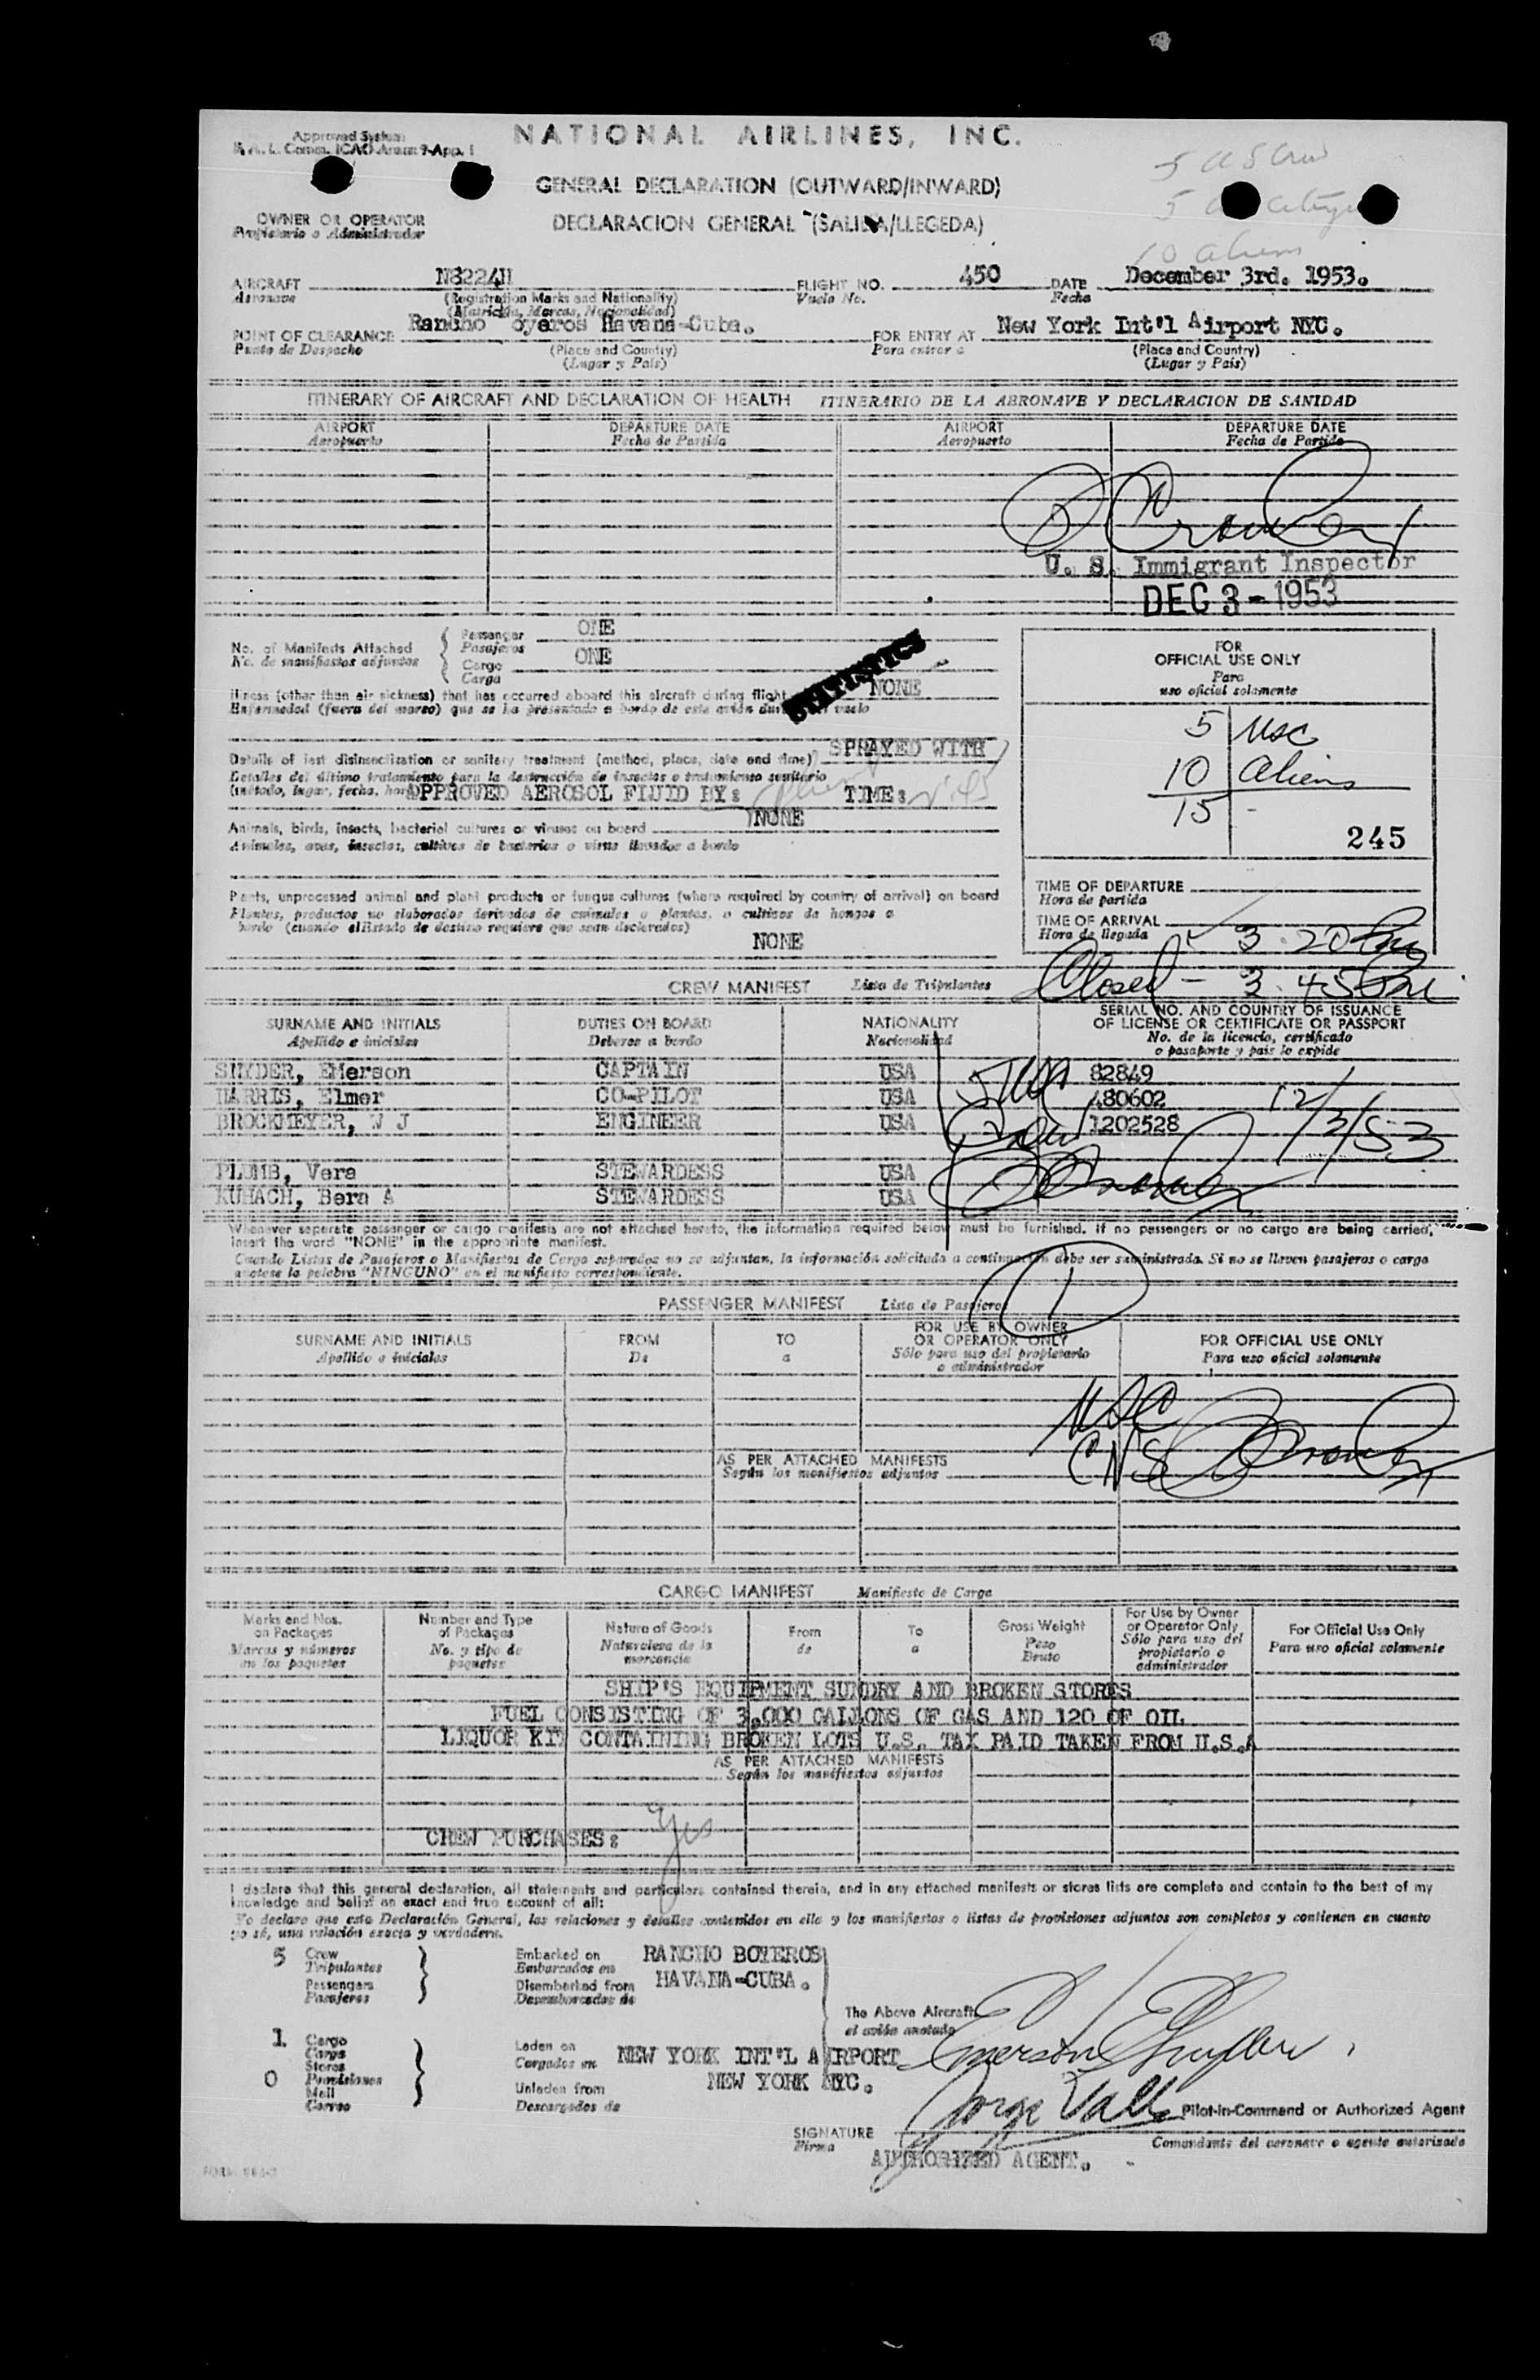 Approved System
NATIONAL AIRLINES, INC.
GENERAL DECLARATION (OUTWARD/INWARD)
OWNER OR OPERATOR
Propietario o Administrador
DECLARACION GENERAL (SALIDA/LLEGEDA)
5 US Crew
10 aliens
AIRCRAFT N8224H FLIGHT NO. 450 DATE December 3rd. 1953.
Aeronave (Registration Marks and Nationality) Vuelo No. Fecha
(Matricula, Marcas, Nacionalidad)
POINT OF CLEARANCE Rancho oyeros Havana-Cuba. FOR ENTRY AT New York Int'l Airport NYC.
Punto de Despacho (Place and Country) Para entrar a (Place and Country)
(Lugar y Pais) (Lugar y Pais)
ITINERARY OF AIRCRAFT AND DECLARATION OF HEALTH ITINERARIO DE LA AERONAVE Y DECLARACION DE SANIDAD
AIRPORT DEPARTURE DATE AIRPORT DEPARTURE DATE
Aeropuerto Fecha de Partida Aeropuerto Fecha de Partida
U. S. Immigrant Inspector
DEC 3 - 1953
No. of Manifests Attached Passenger ONE
No. de manifiestos adjuntos Pasajeros
Cargo ONE
Carga
STATISTICS
Illness (other than air sickness) that has occurred aboard this aircraft during flight NONE
Enfermedad (fuera del mareo) que se ha presentado a bordo de este avión vuelo
Details of last disinsectization or sanitary treatment (method, place, date and time) SPRAYED WITH
Detalles del último tratamiento para la destrucción de insectos o tratamiento sanitario
(método, lugar, fecha, hora APPROVED AEROSOL FLUID BY: TIME:
Animals, birds, insects, bacterial cultures or viruses on board NONE
Animales, aves, insectos, cultivos de bacterias o virus llevados a bordo
Plants, unprocessed animal and plant products or fungus cultures (where required by country of arrival) on board
Plantas, productos no elaborados derivados de animales o plantas, o cultivos de hongos a
bordo (cuando el Estado de destino requiere que sean declarados)
NONE
FOR
OFFICIAL USE ONLY
Para
uso oficial solamente
5 USC
10 Aliens
15 -
245
TIME OF DEPARTURE
Hora de partida
TIME OF ARRIVAL 3.20 Pm
Hora de llegada
Closed - 3.45 Pm
CREW MANIFEST Lista de Tripulantes
SURNAME AND INITIALS DUTIES ON BOARD NATIONALITY SERIAL NO. AND COUNTRY OF ISSUANCE
OF LICENSE OR CERTIFICATE OR PASSPORT
Apellido e iniciales Deberes a bordo Nacionalidad No. de la licencia, certificado
o pasaporte y pais lo expide
SNYDER, EMerson CAPTAIN USA 82849
HARRIS, Elmer CO-PILOT USA 480602
BROCKMEYER, W J ENGINEER USA 1202528
12/3/53
PLUMB, Vera STEWARDESS USA
KUHACH, Bern A STEWARDESS USA
Whenever separate passenger or cargo manifests are not attached hereto, the information required below must be furnished. If no passengers or no cargo are being carried,
insert the word "NONE" in the appropriate manifest.
Cuando Listas de Pasajeros o Manifiestos de Carga separados no se adjuntan, la información solicitada a continuación debe ser suministrada. Si no se llevan pasajeros o carga
anotese la palabra "NINGUNO" en el manifiesto correspondiente.
PASSENGER MANIFEST Lista de Pasajeros
SURNAME AND INITIALS FROM TO FOR USE BY OWNER OR OPERATOR ONLY FOR OFFICIAL USE ONLY
Apellido e iniciales De a Sólo para uso del propietario o administrador Para uso oficial solamente
AS PER ATTACHED MANIFESTS
Según los manifiestos adjuntos
CARGO MANIFEST Manifiesto de Carga
Marks and Nos. on Packages Number and Type of Packages Nature of Goods From To Gross Weight For Use by Owner or Operator Only For Official Use Only
Marcas y números en los paquetes No. y tipo de paquetes Naturaleza de la mercancia de a Peso Bruto Sólo para uso del propietario o administrador Para uso oficial solamente
SHIP'S EQUIPMENT SUNDRY AND BROKEN STORES
FUEL CONSISTING OF 3,000 GALLONS OF GAS AND 120 OF OIL
LIQUOR KIT CONTAINING BROKEN LOTS U.S. TAX PAID TAKEN FROM U.S.A
AS PER ATTACHED MANIFESTS
Según los manifiestos adjuntos
CREW PURCHASES: Yes
I declare that this general declaration, all statements and particulars contained therein, and in any attached manifests or stores lists are complete and contain to the best of my
knowledge and belief an exact and true account of all:
Yo declaro que esta Declaración General, las relaciones y detalles contenidos en ella y los manifiestos o listas de provisiones adjuntos son completos y contienen en cuanto
yo sé, una relación exacta y verdadera.
5 Crew Embarked on RANCHO BOYEROS
Tripulantes Embarcados en
Passengers Disembarked from HAVANA-CUBA.
Pasajeros Desembarcados de
The Above Aircraft
el avión anotado
1 Cargo Laden on NEW YORK INT'L AIRPORT
Carga Cargados en
Stores
0 Provisiones Unladen from NEW YORK NYC.
Mail Descargados de
Correo
Emerson E Snyder
Jorge Valls
Pilot-in-Command or Authorized Agent
SIGNATURE
Firma
Comandante del aeronave o agente autorizado
AUTHORIZED AGENT.